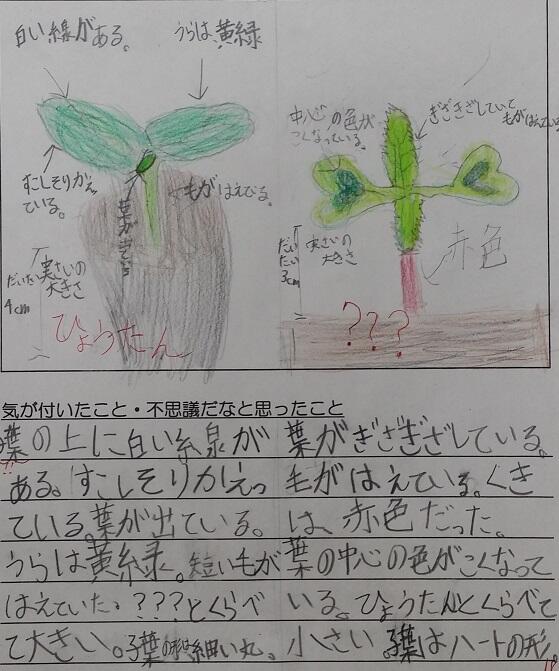 白い線がある。
うらは黄緑
すこしそりかえっている。
葉が出ている
毛がはえてる。
だいたい4cm
実さいの大きさ
ひょうたん
中心の色がこくなっている。
ぎざぎざしていて毛がはえている
だいたい3cm
実さいの大きさ
赤色
???
気が付いたこと・不思議だなと思ったこと
葉の上に白い線が
ある。すこしそりかえっ
ている。葉が出ている。
うらは黄緑。短い毛が
はえていた。???とくらべ
て大きい。子葉の 細い丸。
葉がぎざぎざしている。
毛がはえている。くき
は、赤色だった。
葉の中心の色がこくなって
いる。ひょうたんとくらべて
小さい。子葉はハートの形。